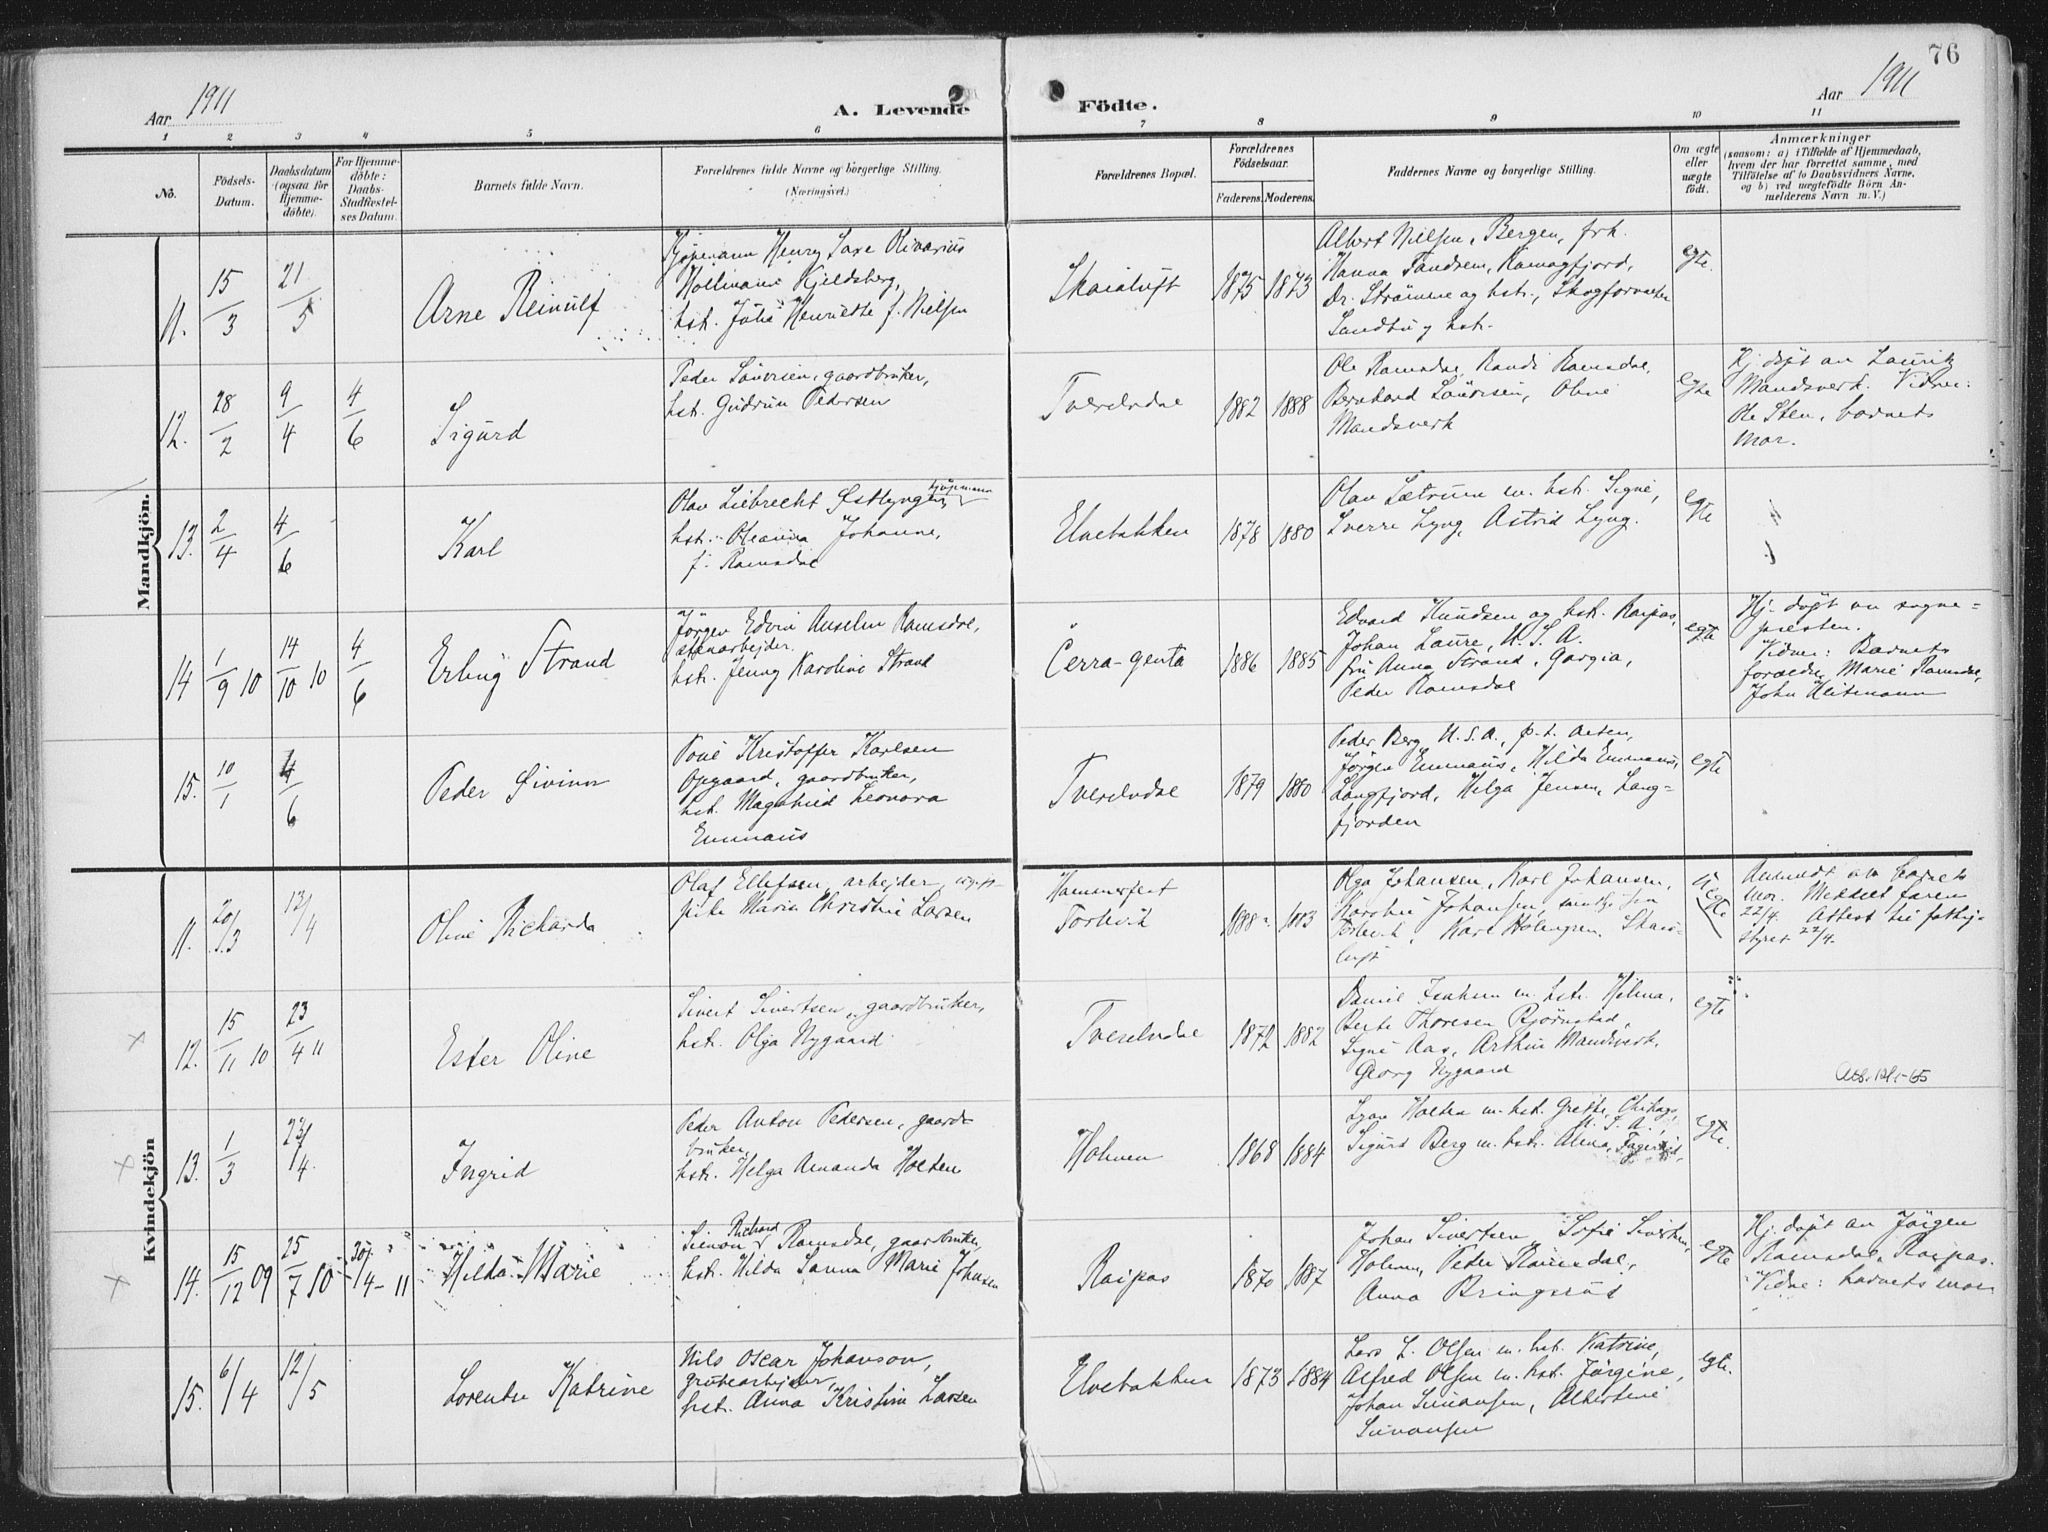 76
Aar 1911
A. Levende Födte.
Aar 1911
1 2 3 4 5 6 7 8 9 10 11
No.
Födsels-Datum.
Daabsdatum (ogsaa for Hjemme-døbte).
For Hjemme-døbte: Daabs-Stadfæstel-ses Datum.
Barnets fulde Navn.
Forældrenes fulde Navne og borgerlige Stilling. (Næringsvei.)
Forældrenes Bopæl.
Forældrenes Födselsaar.
Faderens. Moderens.
Faddernes Navne og borgerlige Stilling.
Om ægte eller uægte födt.
Anmærkninger
(saasom: a) i Tilfælde af Hjemmedaab,
hvem der har forrettet samme, med
Tilföielse af to Daabsvidners Navne,
og b) ved uægtefödte Börn An-
melderens Navn m. V.)
Mandkjön.
11. 15/3 21/5 Arne Reinulf
Kjøpmann Henry Lare Olivarius
Kjeldsberg,
hst. Julie Henriette f. Nielsen
Skaialuft 1875 1873
Albert Nielsen, Bergen, frk.
Hanna Tandsem, Komagfjord,
Dr. Strømme og hst., Skogforvalter
Sandbu og hst.
egte.
12. 28/2 9/4 4/6 Sigurd
Peder Sönvisen, gaardbruker,
hst. Gudrun Pedersen
Tverelvdal 1882 1888
Ole Romsdal, Randi Romsdal,
Bernhard Sönvisen, Oline
Mandsverk
egte
Hj. døpt av Lauritz
Mandsverk. Vidner:
Ole Sten, barnets
mor.
13. 2/4 4/6 Karl
Olav Liebrecht Østlyngen, kjøpmann
hst. Oleanna Johanne,
f. Romsdal
Elvebakken 1878 1880
Olav Sætrum m. hst. Signe,
Sverre Lyng, Astrid Lyng.
egte
14 1/9 10 14/10 10 4/6 Erling Strand
Jörgen Edvin Anselm Romsdal,
hst. Jenny Karoline Strand
Cerra-genta 1886 1885
Edvard Knudsen og hst. Raipas,
Johan Laure, U.S.A.
fru Anna Strand, Gargia,
Peder Romsdal
egte
Hj. døpt av sogne=
presten.
Vidner: Barnets
foreldre, Marie Romsdal,
John Heitmann
15. 10/1 4/6 Peder Eivinn
Povel Kristoffer Karlsen
Opgaard, gaardbruker,
hst. Magnhild Leonora
Emmaus
Tverelvdal 1879 1880
Peder Berg U.S.A., p.t. Alten,
Jörgen Emmaus, Hilda Emmaus,
Langfjord, Helga Jensen, Lang=
fjorden
egte
Kvindekjön
11. 20/3 17/4 Oline Richarda
Olaf Ellefsen, arbejder, ugift
pike Marie Christine Larsen
Hammerfest
Torvik 1888
Olga Johansen, Karl Johansen,
Karoline Johansen, samtlige fra
Torvik, Karl Holmgren, Skaia-
luft
U egte
Anmeldt av barnets
mor. Meddelt faren
22/4. Attest til fattig-
styret 22/4.
12. 15/11 10 23/4 11 Ester Oline
Sivert Sivertsen, gaardbruker,
hst. Olga Nygaard
Tverelvdal 1872 1882
Daniel Isaksen m. hst. Hilma,
Berte Thoresen Bjørnstad,
Signe Aas, Arthur Mandsverk,
Georg Nygaard
egte
13. 1/3 23/4. Ingrid
Peder Anton Pedersen, gaard-
bruker,
hst. Helga Amanda Holten
Holmen 1868 1884
Lyder Holten m. hst. Grethe, Chikago,
U.S.A.,
Sigurd Berg m. hst. Alma,
egte.
14. 15/12 09 25/7 10 30/4-11 Hilda Marie
Simon Richard Romsdal, gaardbruker,
hst. Hilda Sanna Marie Johnsen
Raipas 1870 1887
Johan Sivertsen, Sofie Sivertsen,
Holmen, Peder Romsdal,
Anna Bringsrud
egte
Hj. døpt av Jörgen
Romsdal, Raipas.
Vidne: barnets mor
15. 6/4 12/5 Lorentse Katrine
Nils Oscar Johanson,
grubearbejder,
hst. Anna Kristine Larsen
Elvebakken 1873 1884
Lars L. Olsen m. hst. Katrine,
Alfred Olsen m. hst. Jörgine,
Johan Simonsen, Albertine
Simonsen
egte.